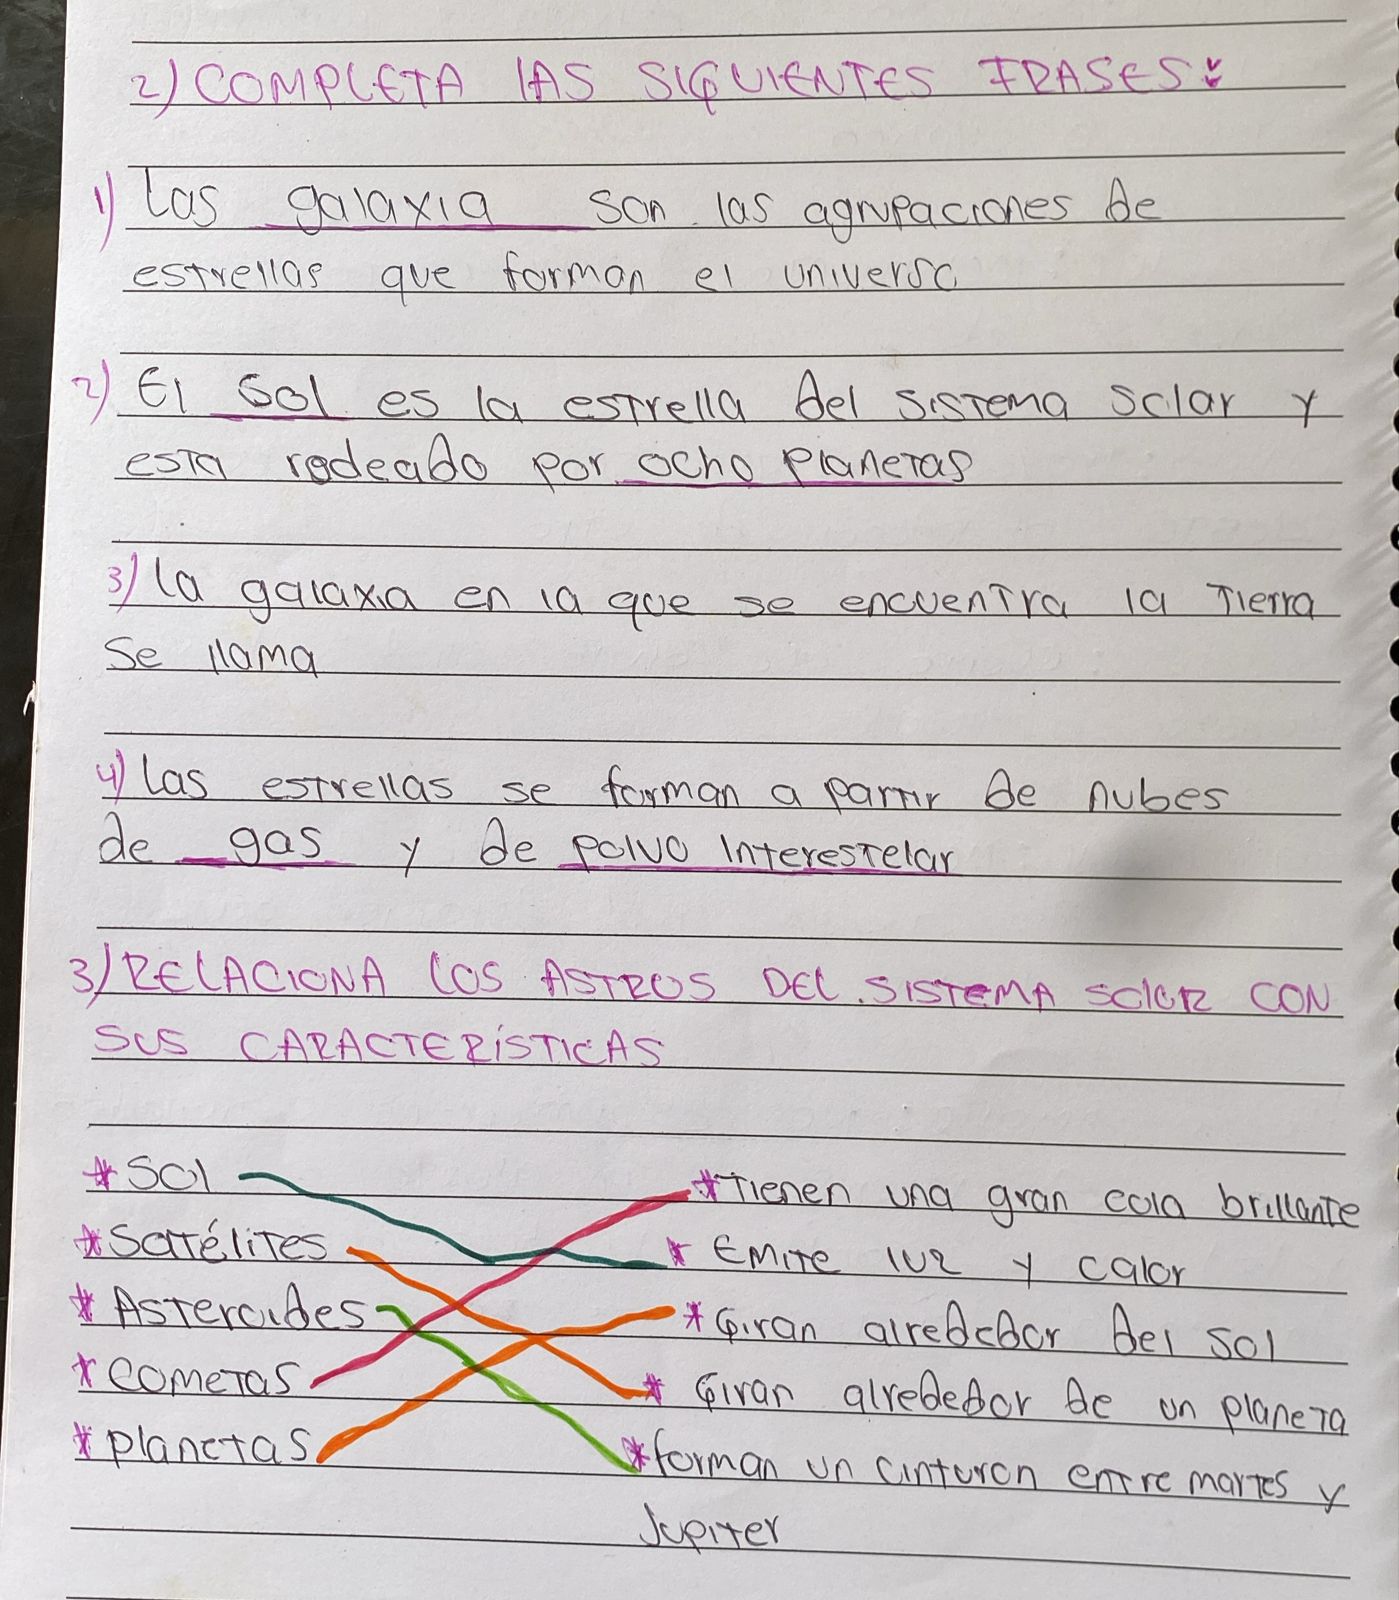 2) COMPLETA LAS SIGUIENTES FRASES:
1) Las galaxia son las agrupaciones de
estrellas que forman el universo
2) El Sol es la estrella del sistema solar y
esta rodeado por ocho planetas
3) La galaxia en la que se encuentra la Tierra
Se llama
4) Las estrellas se forman a partir de nubes
de gas y de polvo Interestelar
3) RELACIONA LOS ASTROS DEL SISTEMA SOLAR CON
SUS CARACTERÍSTICAS
* Sol
* Tienen una gran cola brillante
* Satélites
* Emite luz y calor
* Asteroides
* Giran alrededor del sol
* cometas
* Giran alrededor de un planeta
* planetas
* forman un cinturon entre martes y
Jupiter